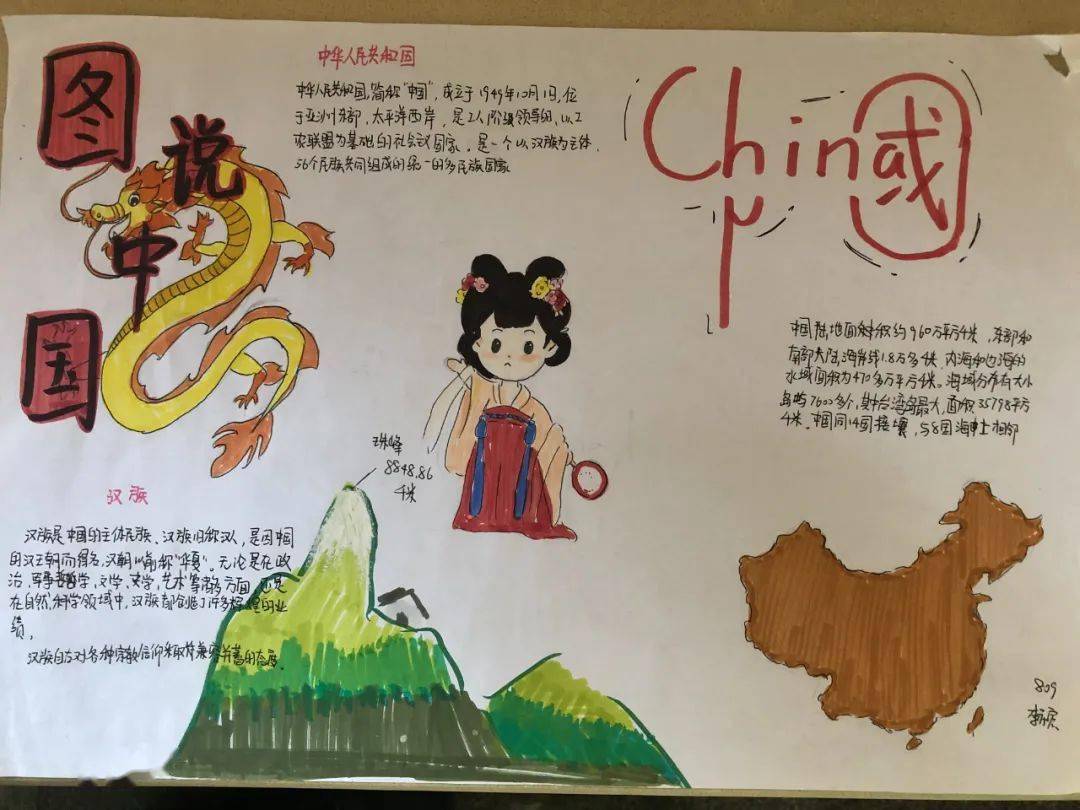 图
说
中
国
中华人民共和国
中华人民共和国,简称"中国",成立于1949年10月1日,位
于亚洲东部,太平洋西岸,是工人阶级领导的,以工
农联盟为基础的社会主义国家。是一个以汉族为主体,
56个民族共同组成的统一的多民族国家
China
中国陆地面积约960万平方千米,东部和
南部大陆海岸线1.8万多千米,内海和边海的
水域面积为470多万平方千米。海域分布有大小
岛屿7600多个,其中台湾岛最大,面积35798平方
千米。中国同14国接壤,与8国海上相邻
珠峰
8848.86
千米
汉族
汉族是中国的主体民族、汉族旧称汉人,是因中国
的汉王朝而得名,汉朝以前称"华夏"。无论是在政
治,军事,哲学,文学、史学,艺术等诸多方面,还是
在自然科学领域中,汉族都创造了许多辉煌的业
绩。
汉族自古对各种宗教信仰采取兼容并蓄的态度.
809